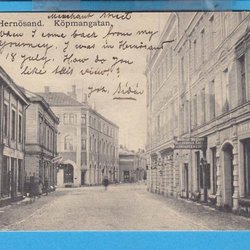 Merchant street
Hernösand. Köpmangatan.
when I come back from my
journey. I was in Hernösand
18 July. How do you
like this view?